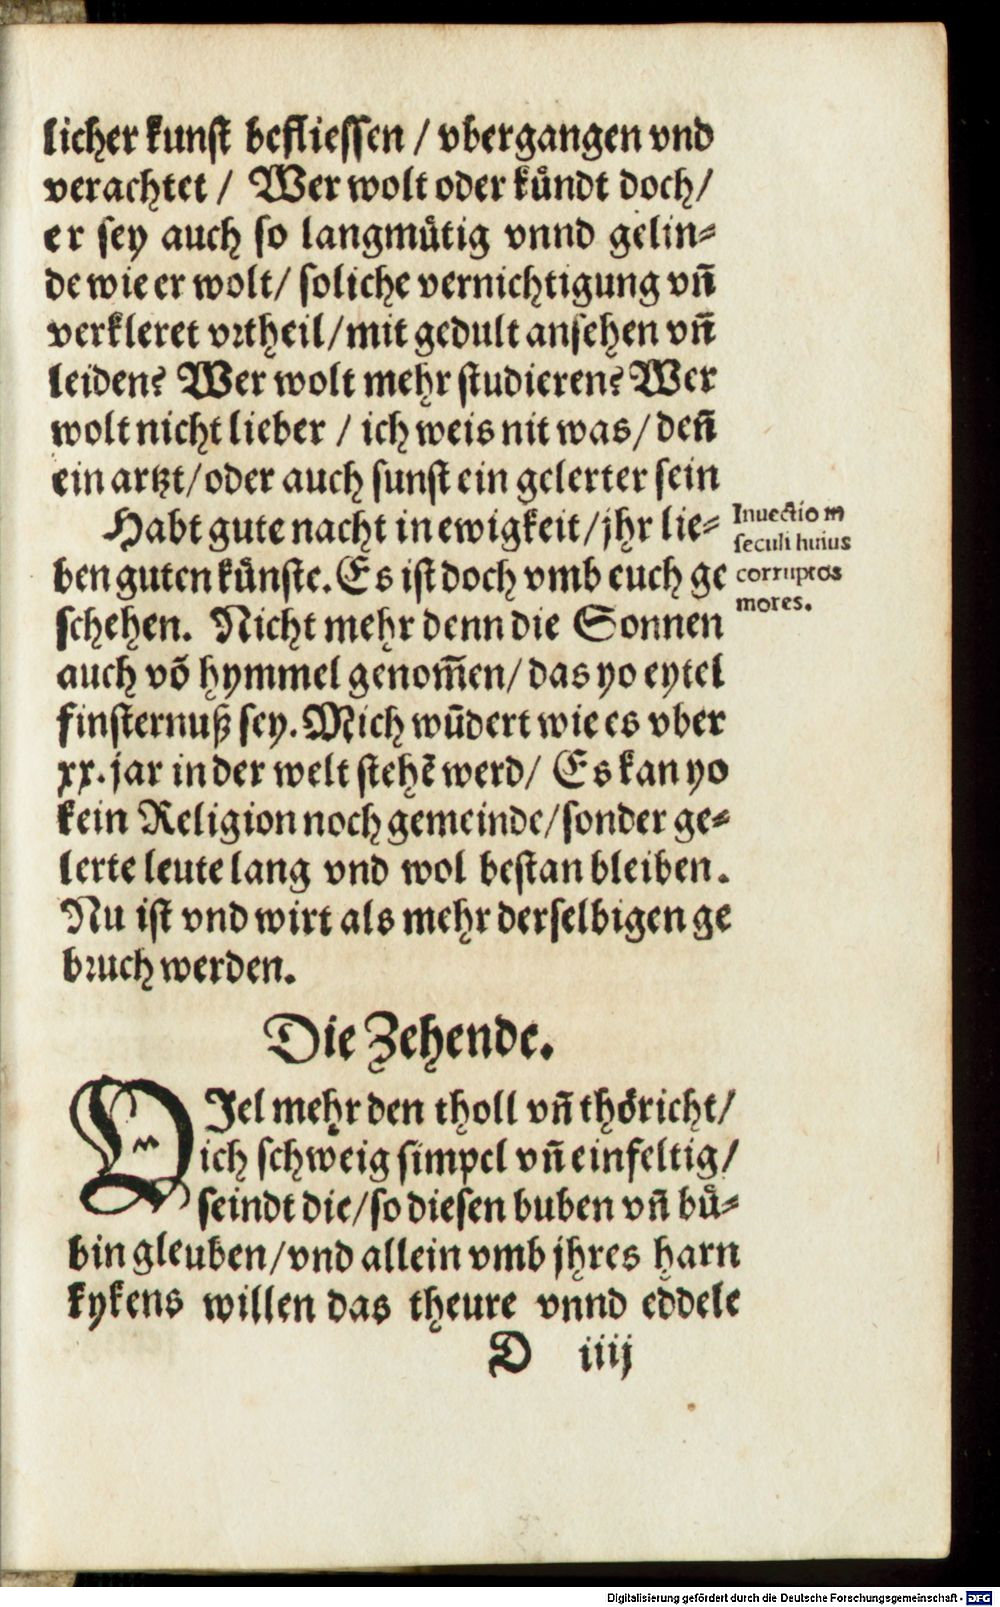 licher kunst befliessen / vbergangen vnd
verachtet / Wer wolt oder kůndt doch/
er sey auch so langmůtig vnnd gelin⸗
de wie er wolt/ soliche vernichtigung vñ
verkleret vrtheil/mit gedult ansehen vñ
leiden? Wer wolt mehr studieren? Wer
wolt nicht lieber / ich weis nit was/ deñ
ein artzt/oder auch sunst ein gelerter sein
Habt gute nacht in ewigkeit/jhr lie⸗
ben guten kůnste. Es ist doch vmb euch ge
schehen. Nicht mehr denn die Sonnen
auch võ hymmel genom̃en/ das yo eytel
finsternuß sey. Mich wũdert wie es vber
xx. jar in der welt stehẽ werd/ Es kan yo
kein Religion noch gemeinde/sonder ge⸗
lerte leute lang vnd wol bestan bleiben.
Nu ist vnd wirt als mehr derselbigen ge
bruch werden.
Inuectio in
seculi huius
corruptos
mores.
Die Zehende.
VJel mehr den tholl vñ thöricht/
ich schweig simpel vñ einfeltig/
seindt die/so diesen buben vñ bů⸗
bin gleuben/vnd allein vmb jhres harn
kykens willen das theure vnnd eddele
D iiij
Digitalisierung gefördert durch die Deutsche Forschungsgemeinschaft - DFG